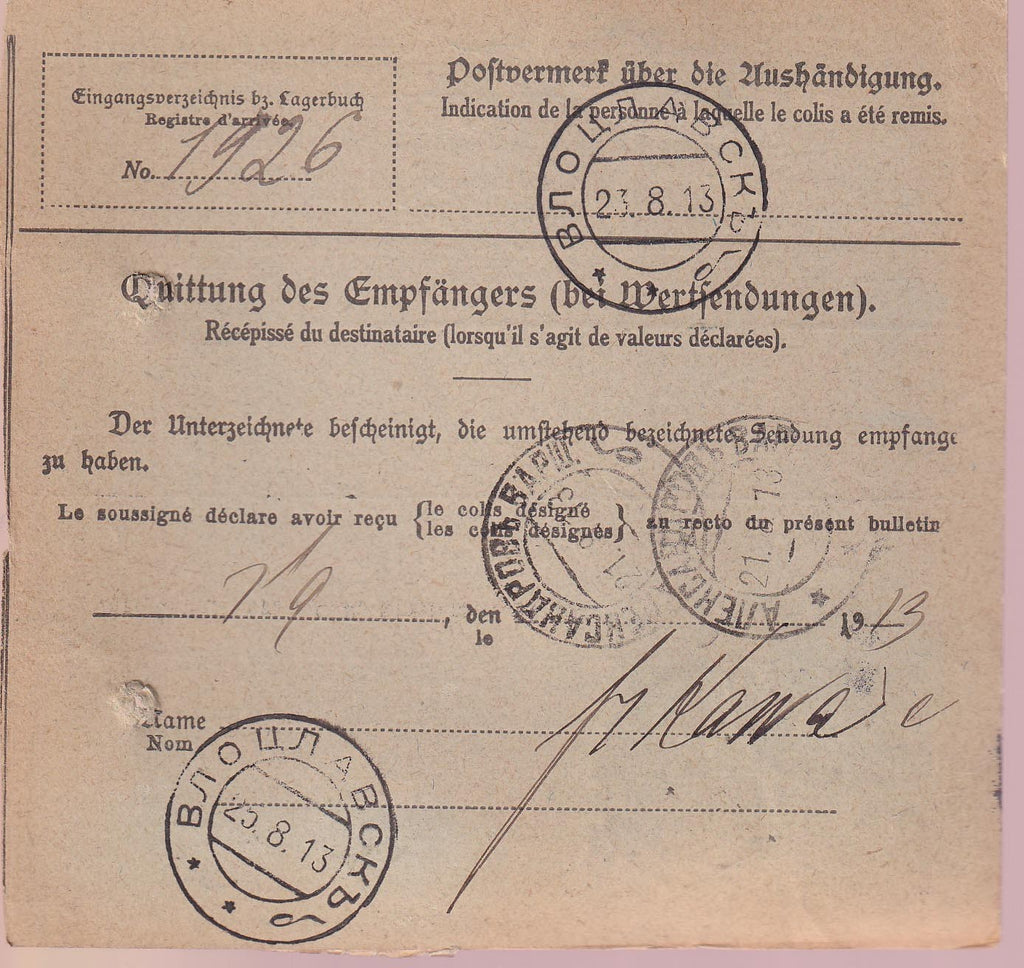 Eingangsverzeichnis bz. Lagerbuch
Registre d'arrivée.
No. 1926
Postvermerk über die Aushändigung.
Indication de la personne à laquelle le colis a été remis.
ВЛОЦЛАВСКЪ
23.8.13
Quittung des Empfängers (bei Wertsendungen).
Récépissé du destinataire (lorsqu'il s'agit de valeurs déclarées).
Der Unterzeichnete bescheinigt, die umstehend bezeichnete Sendung empfange
zu haben.
Le soussigné déclare avoir reçu {le colis désigné
les colis désignés} au recto du présent bulletin
АЛЕКСАНДРОВЪ ВАРШ.
21
АЛЕКСАНДРОВЪ ВАР
21.8.13
, den
le
1913
Name
Nom
ВЛОЦЛАВСКЪ
23.8.13